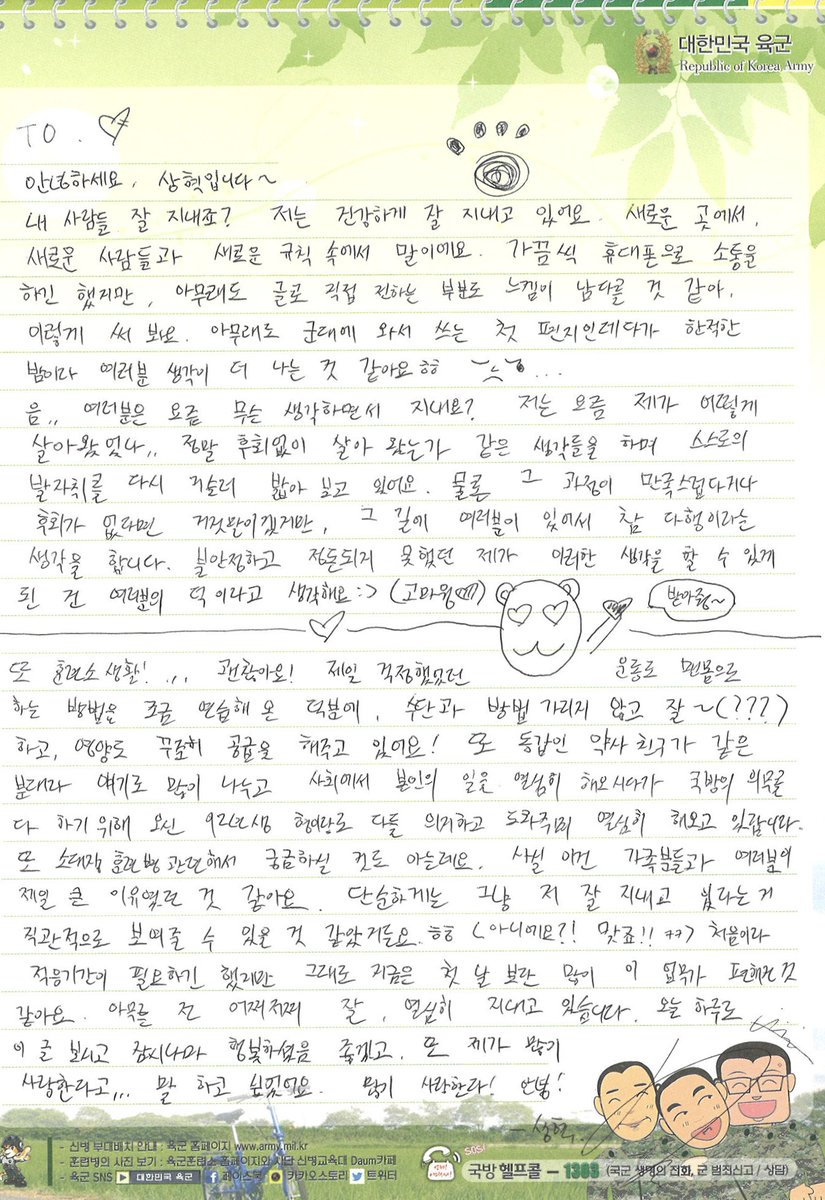 대한민국 육군
Republic of Korea Army
TO.
안녕하세요, 상혁입니다~
내 사람들 잘 지내죠? 저는 건강하게 잘 지내고 있어요. 새로운 곳에서,
새로운 사람들과 새로운 규칙 속에서 말이에요. 가끔씩 휴대폰으로 소통을
하긴 했지만, 아무래도 글로 직접 전하는 부분도 느낌이 남다를 것 같아,
이렇게 써 봐요. 아무래도 군대에 와서 쓰는 첫 편지인데다가 한적한
밤이라 여러분 생각이 더 나는 것 같아요ㅎㅎ
음,, 여러분은 요즘 무슨 생각하면서 지내요? 저는 요즘 제가 어떻게
살아왔었나,, 정말 후회없이 살아 왔는가 같은 생각들을 하며 스스로의
발자취를 다시 거슬러 밟아 보고 있어요. 물론 그 과정이 만족스럽다거나
후회가 없다면 거짓말이겠지만, 그 길에 여러분이 있어서 참 다행이라는
생각을 합니다. 불안정하고 정돈되지 못했던 제가 이러한 생각을 할 수 있게
된 건 여러분의 덕이라고 생각해요:> (고마웡)
받아줭~
또 훈련소 생활! ... 괜찮아요! 제일 걱정했었던 운동도 맨몸으로
하는 방법을 조금 연습해 온 덕분에, 수단과 방법 가리지 않고 잘~(???)
하고, 영양도 꾸준히 공급을 해주고 있어요! 또 동갑인 약사 친구가 같은
분대라 얘기도 많이 나누고 사회에서 본인의 일을 열심히 해오시다가 국방의 의무를
다 하기 위해 오신 92년생 형이랑도 다들 의지하고 도와주며 열심히 해오고 있답니다.
또 소대장 훈련병 관련해서 궁금하실 것도 아는데요. 사실 이건 가족분들과 여러분이
제일 큰 이유였던 것 같아요. 단순하게는 그냥 저 잘 지내고 있다는 거
직관적으로 보여줄 수 있을 것 같았거든요.ㅎㅎ <아니에요?! 맞죠!! ㅋㅋ> 처음이라
적응기간이 필요하긴 했지만 그래도 지금은 첫 날 보단 많이 이 업무가 편해진 것
같아요. 아무튼 전 어찌저찌 잘, 열심히 지내고 있습니다. 오늘 하루도
이 글 보시고 잠시나마 행복하셨음 좋겠고, 또 제가 많이
사랑한다고,,, 말 하고 싶었어요. 많이 사랑한다! 안녕!
- 상혁.
- 신병 부대배치 안내 : 육군 홈페이지 www.army.mil.kr
- 훈련병의 사진 보기 : 육군훈련소 홈페이지와 사단 신병교육대 Daum카페
- 육군 SNS 대한민국 육군 페이스북 카카오스토리 트위터
SOS!
국방헬프콜 – 1303 (국군 생명의 전화, 군 범죄신고 / 상담)